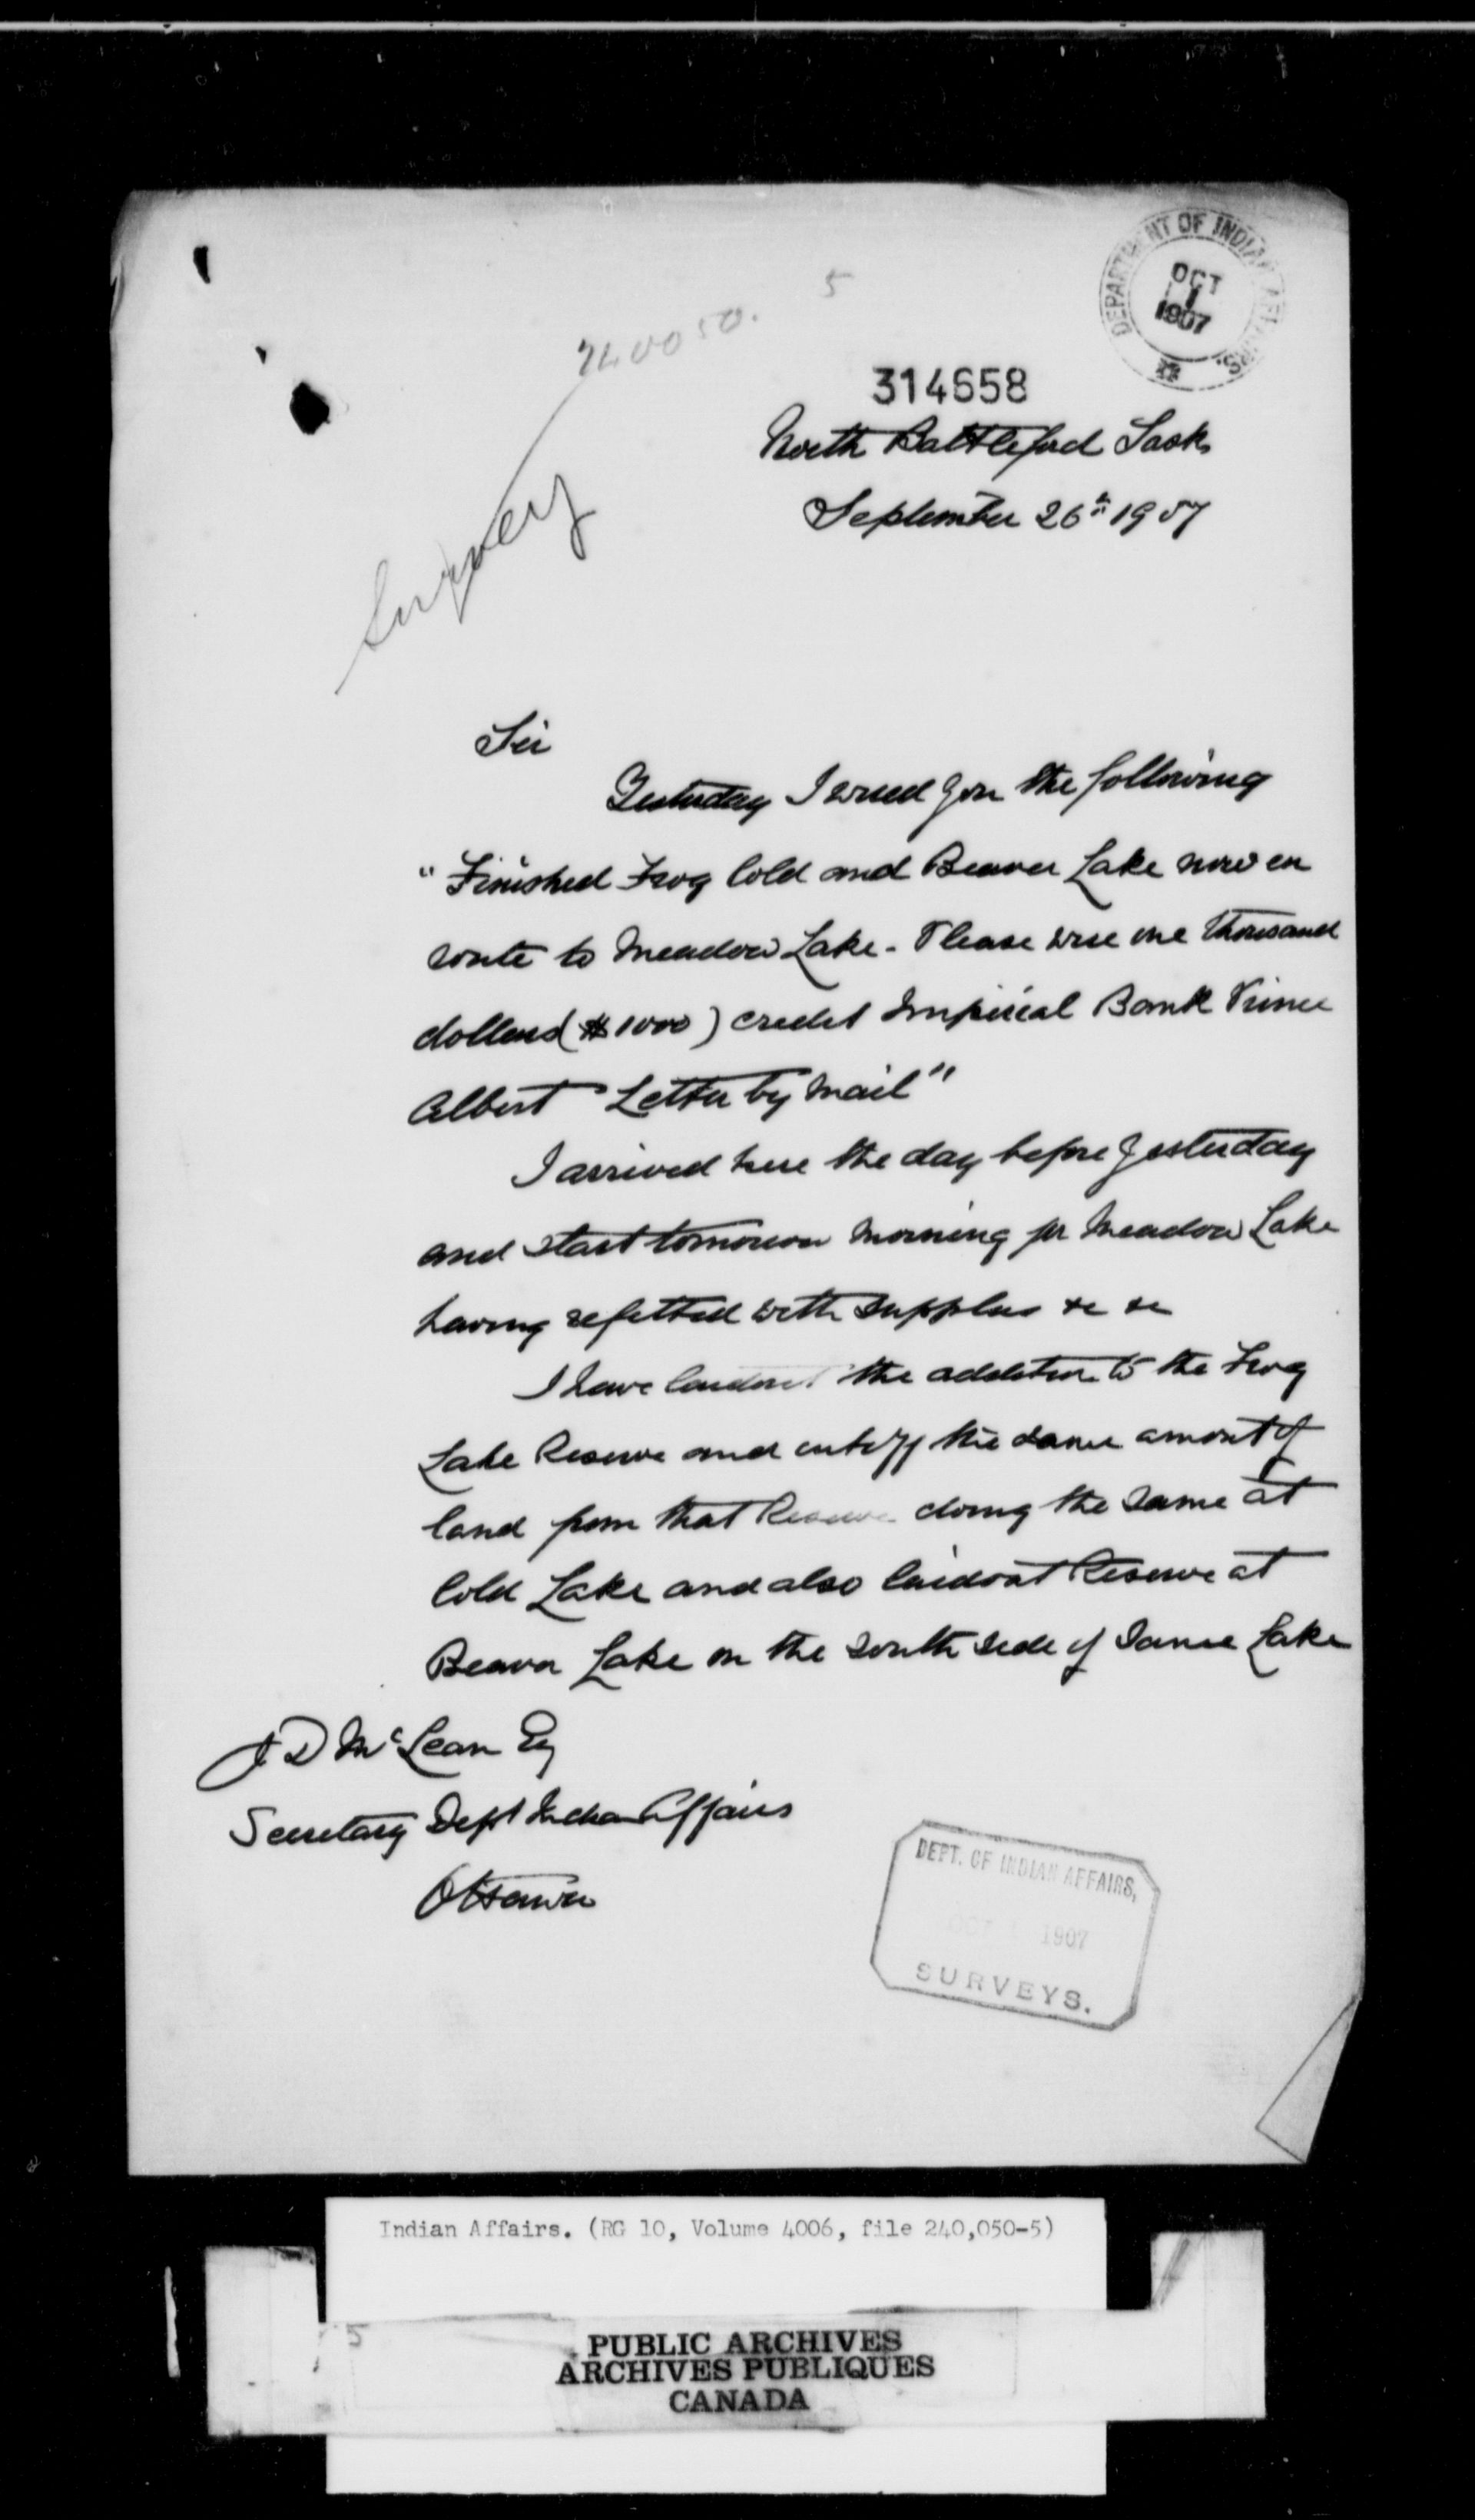 DEPARTMENT OF INDIAN AFFAIRS.
OCT
1
1907
5
240050.
314658
Survey
North Battleford Sask
September 26th 1907
Sir
Yesterday I wired you the following
"Finished Frog Cold and Beaver Lake now en
route to Meadow Lake - Please wire me thousand
dollars ($1000) credit Imperial Bank Prince
Albert Letter by mail"
I arrived here the day before yesterday
and start tomorrow morning for Meadow Lake
having refitted with supplies &c &c
I have laidout the addition to the Frog
Lake Reserve and cut off the same amount of
land from that Reserve doing the same at
Cold Lake and also laidout Reserve at
Beaver Lake on the south side of same Lake
J D McLean Esq
Secretary Dept Indian Affairs
Ottawa
DEPT. OF INDIAN AFFAIRS,
OCT 1 1907
SURVEYS.
Indian Affairs. (RG 10, Volume 4006, file 240,050-5)
5
PUBLIC ARCHIVES
ARCHIVES PUBLIQUES
CANADA